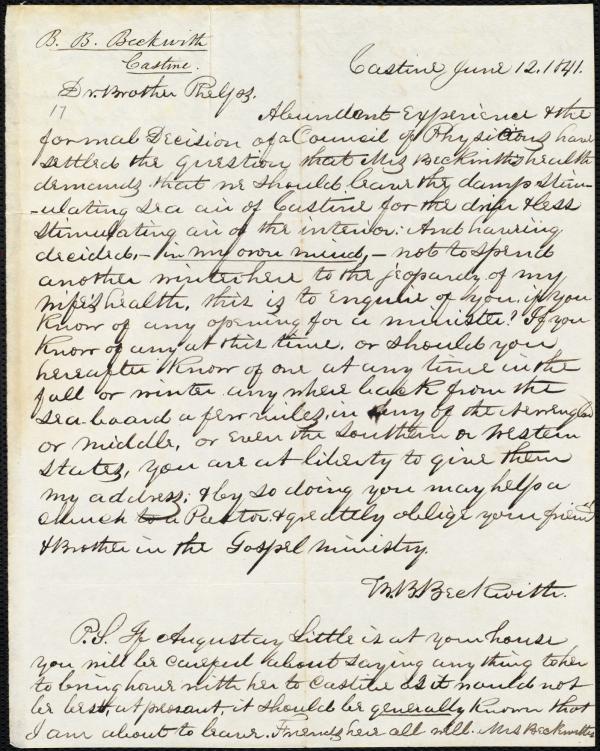 B. B. Beckwith
Castine.
Castine June 12. 1841.
Dr. Brother Phelps.
17
Abundent Experience & the
formal Decision of a Council of Physicians have
settled the question that Mrs Beckwith's health
demands that we should leave the damp stim-
-ulating sea air of Castine for the drier & less
stimulating air of the interior: And having
decided, - in my own mind, - not to spend
another winter here to the jeopardy of my
wife's health, this is to enquire of you, if you
know of any opening for a minister? If you
know of any at this time, or should you
hereafter know of one at any time in the
fall or winter any where back from the
sea board a few miles, in any of the New england
or middle, or even the Southern or Western
States, you are at liberty to give them
my address; & by so doing you may help a
church to a Pastor. & greatly oblige your friend
& Brother in the Gospel ministry.
B. B. Beckwith.
P.S. If Augusta Little is at your house
you will be careful about saying any thing to her
to bring home with her to Castine as it would not
be best, at present, it should be generally known that
I am about to leave. Friends here all well. Mrs Beckwith's